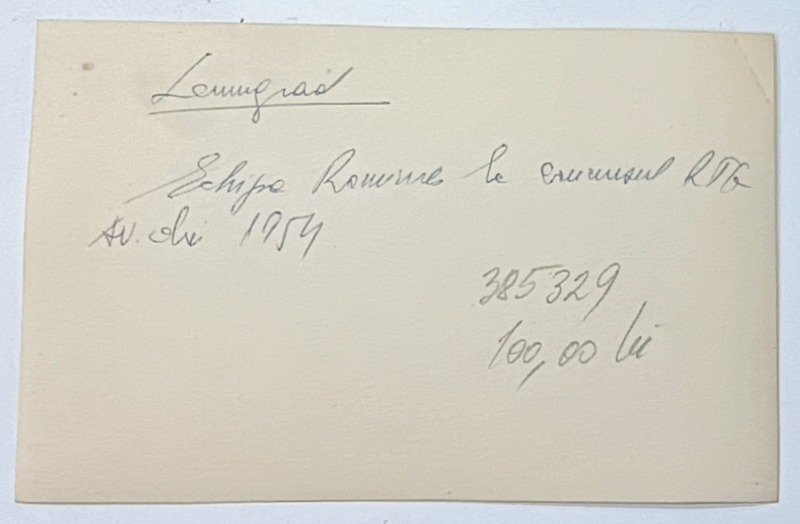 Leningrad
Echipa Romînă la concursul RTG
Av. din 1954
385329
100,00 lei